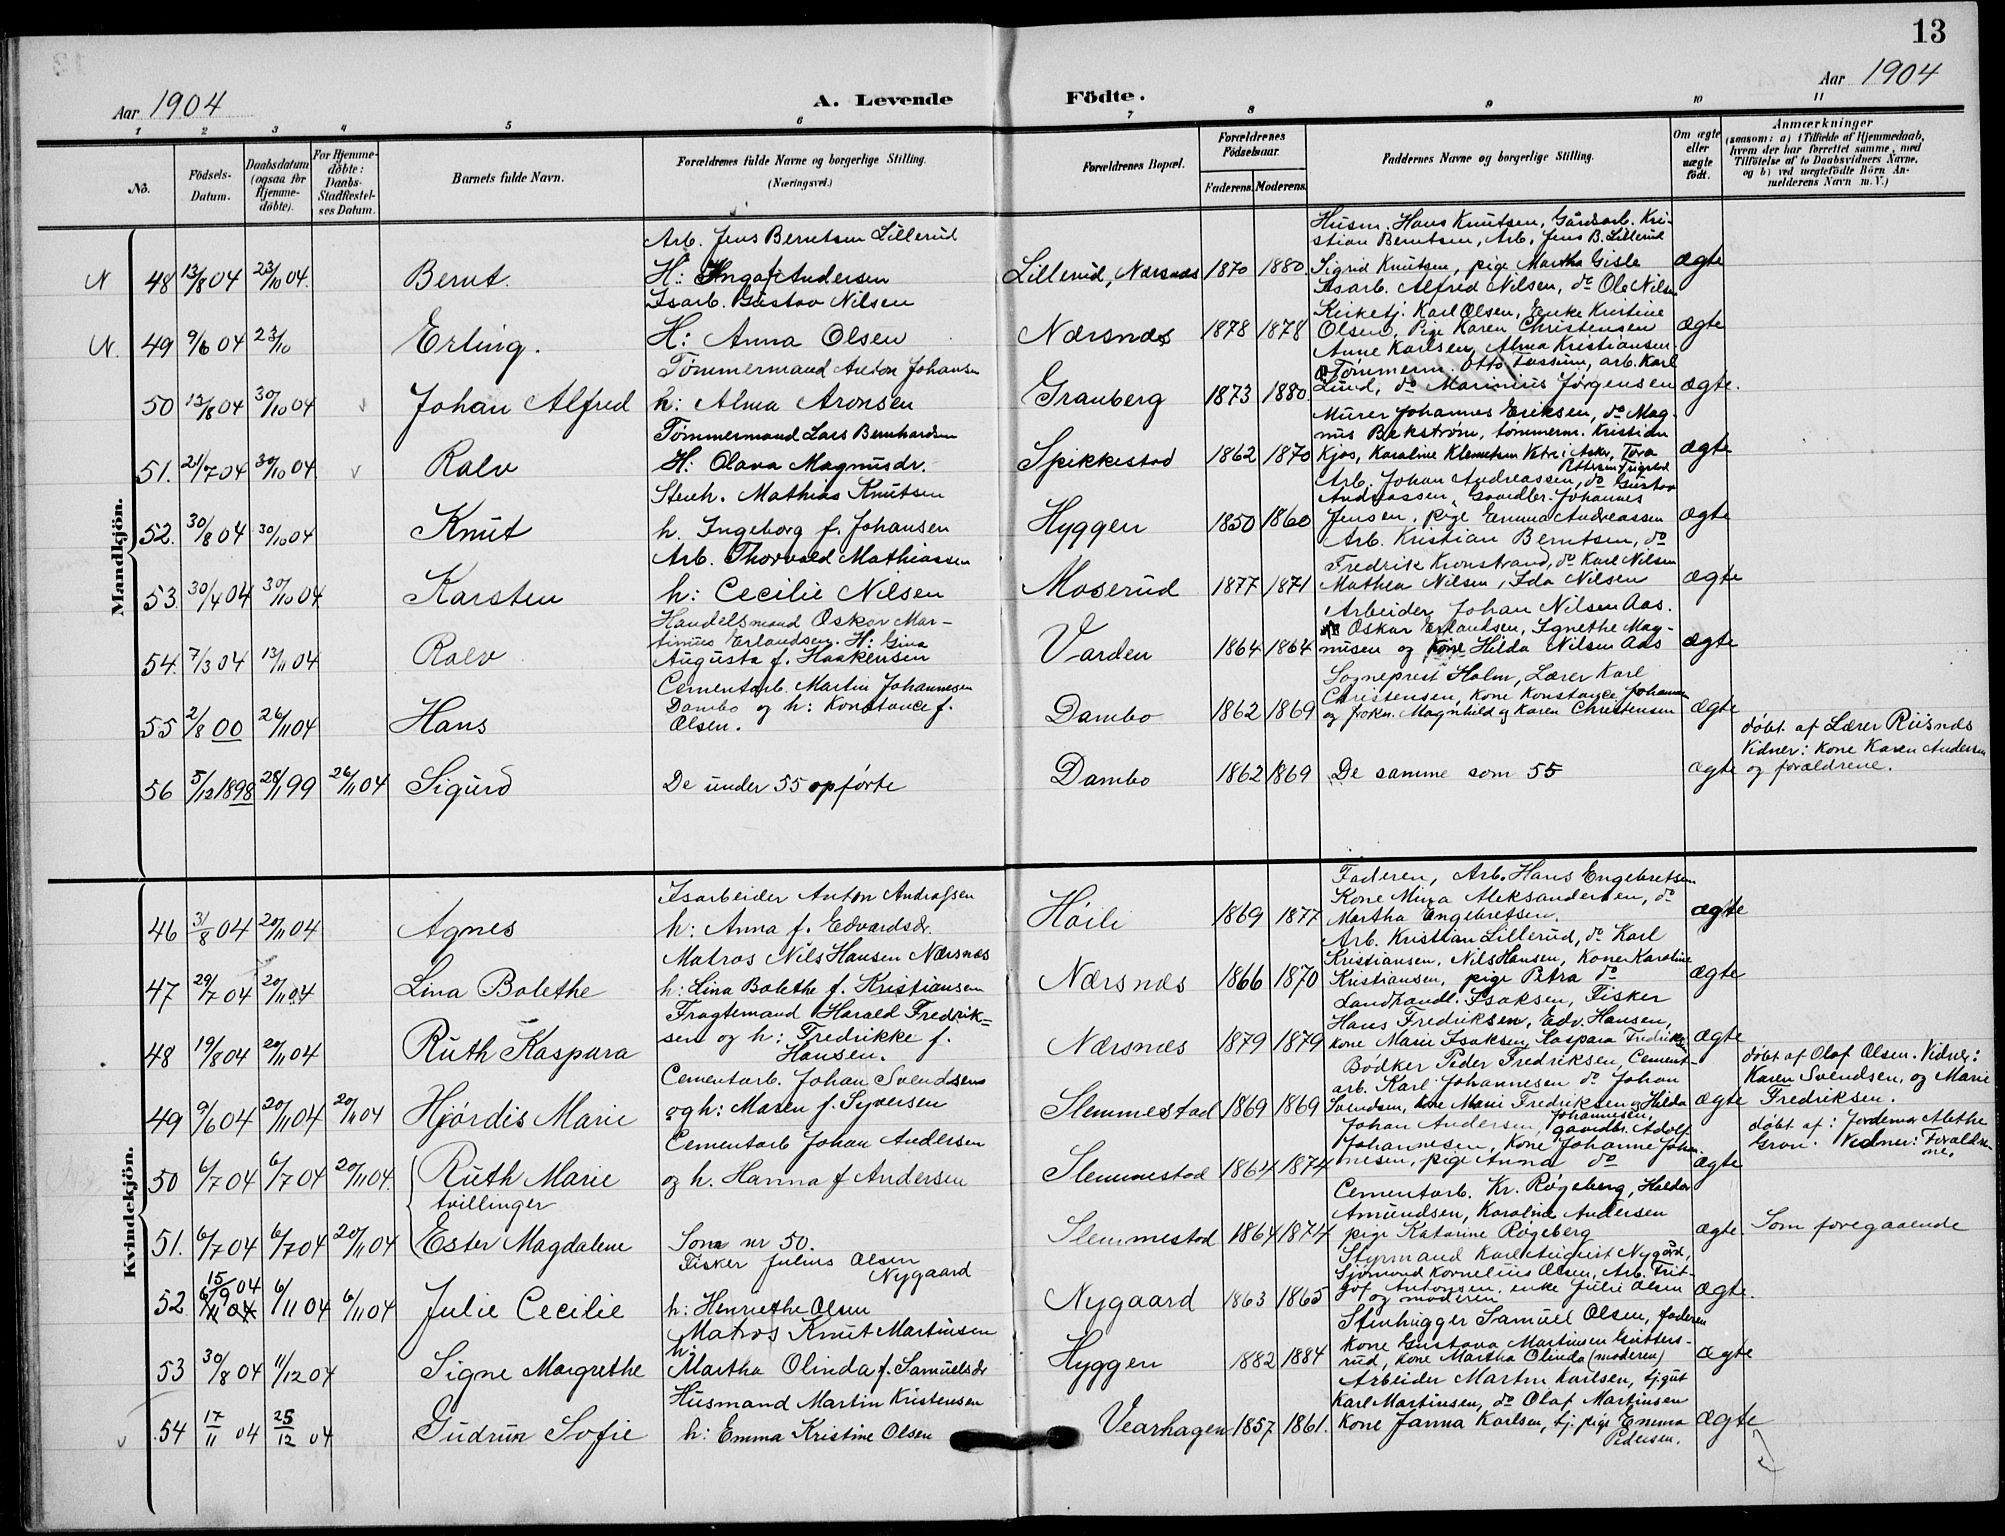 13
Aar 1904
A. Levende
Födte.
Aar 1904
1 2 3 4 5 6 7 8 9 10 11
No.
Födsels-
Datum.
Daabsdatum
(ogsaa for
Hjemme-
döbte).
For Hjemme-
döbte:
Daabs-
Stadfæstel-
ses Datum.
Barnets fulde Navn.
Forældrenes fulde Navne og borgerlige Stilling.
(Næringsvei.)
Forældrenes Bopæl.
Forældrenes
Födselsaar.
Faderens. Moderens.
Faddernes Navne og borgerlige Stilling.
Om ægte
eller
uægte
födt.
Anmærkninger
(saasom: a) i Tilfælde af Hjemmedaab,
hvem der har forrettet samme, med
Tilföielse af to Daabsvidners Navne,
og b) ved uægtefödte Börn An-
melderens Navn m. V.)
Mandkjön.
N 48 13/8 04 23/10 04. Bernt.
Arb. Jens Berntsen Lillerud
H: Inga f. Andersen
Lillerud, Nærsnæs 1870 1880
Husm. Hans Knutsen, Gårdsarb. Kri-
stian Berntsen, Arb. Jens B. Lillerud
Sigrid Knutsen, pige Martha Gisle
ægte
N. 49 9/6 04 23/10 Erling.
Isarb. Gustav Nilsen
H: Anna Olsen
Nærsnæs 1878 1878
Isarb. Alfred Nilsen, do Ole Nilsen
Kirketj. Karl Olsen, Enke Kristine
Olsen, Pige Karen Christensen
Anne Karlsen, Alma Kristiansen
ægte
50 13/8 04 30/10 04 Johan Alfred
Tømmermand Anton Johansen
h: Alma Aronsen
Granberg 1873 1880
Tømmerm. Otto Fossum, arb. Karl
Lund, do Marinius Jørgensen
ægte.
51. 21/7 04 30/10 04. Ralv
Tømmermand Lars Bernhardsen
H: Olava Magnusdr.
Spikkestad 1862 1870
Murer Johannes Eriksen, do Mag-
nus Bekstrøm, tømmerm. Kristian
Kjos, Karoline Klemetsen Vebre i Asker, Tora
Pettersen
ægte
52. 30/8 04 30/10 04 Knut
Stenh. Mathias Knutsen
h. Ingeborg f. Johansen
Hyggen 1850 1860
Arb. Johan Andreassen, do Gustav
Andreassen, Johannes
Jensen, pige Emma Andreassen
ægte
53. 30/4 04 30/10 04 Karsten
Arb. Thorvald Mathiassen
h: Cecilie Nilsen
Moserud 1877 1871
Arb. Kristian Berntsen, do
Fredrik Kronstrand, do Karl Nilsen
Mathea Nilsen, Ida Nilsen
ægte
54. 7/3 04 13/11 04 Ralv
Handelsmand Oskar Mar-
tinus Erlandsen. H: Gina
Augusta f. Haakensen
Varden 1864 1864
Arbeider Johan Nilsen Aas.
Oskar Erlandsen, Agnethe Mag-
nusen og kone Hilda Nilsen Aas
ægte
55 2/8 00 26/11 04 Hans
Cementarb. Martin Johannesen
Dambo og h: Konstance f.
Olsen.
Dambo 1862 1869
Sogneprest Holm, Lærer Karl
Christensen, kone Konstance Johannesen
og frøkn. Magnhild og Karen Christensen
ægte
56 5/12 1898 28/11 99 26/11 04 Sigurd
De under 55 opførte
Dambo 1862 1869
De samme som 55
ægte
døbt af Lærer Riisnæs
Vidner: Kone Karen Andersen
og forældrene.
Kvindekjön.
46 31/8 04 20/11 04 Agnes
Isarbeider Anton Andreassen
h: Anna f. Edvardsdr.
Høili 1869 1877
Faderen, Arb. Hans Engebretsen
Kone Mina Aleksandersen, do
Martha Engebretsen.
ægte
47 29/7 04 20/11 04 Lina Bolethe
Matros Nils Hansen Nærsnæs
h: Lina Bolethe f. Kristiansen
Nærsnæs 1866 1870
Arb. Kristian Lillerud, do Karl
Kristiansen, Nils Hansen, Kone Karoline
Kristiansen, pige Petra do
ægte
48 19/8 04 20/11 04 Ruth Kaspara
Fragtemand Harald Fredrik-
sen og h: Fredrikke f.
Hansen.
Nærsnæs 1879 1879
Landhandl. Isaksen, Fisker
Hans Fredriksen, Edv. Hansen,
kone Marie Isaksen, Kaspara Fredriksen
ægte
49 9/6 04 20/11 04 20/11 04 Hjørdis Marie
Cementarb. Johan Svendsen
og h: Maren f. Syversen
Slemmestad 1869 1869
Bødker Peder Fredriksen, Cement-
arb. Karl Johannesen do Johan
Svendsen, kone Marie Fredriksen og Hilda
Johannesen,
ægte
døbt af Olaf Olsen. Vidner:
Karen Svendsen, og Marie
Fredriksen.
50 6/7 04 6/7 04 20/11 04. Ruth Marie
tvillinger
Cementarb Johan Andersen
og h. Hanna f Andersen
Slemmestad 1864 1874
Johan Andersen, gaardbr. Adolf
Johannesen, Kone Johanne Johan-
nesen, pige Anna do
ægte
døbt af: Jordemor Mathe
Gron. Vidner: Foraldre-
ne.
51. 6/7 04 6/7 04 20/11 04 Ester Magdalene
Som nr 50.
Slemmestad 1864 1874
Cementarb. Kr. Røgeberg, Haldor
Amundsen, Karoline Andersen
pige Katarine Røgeberg
ægte.
Som foregaaende
52 15/9 04 6/11 04 6/11 04 6/11 04 Julie Cecilie
Fisker Julius Olsen
Nygaard
h: Henriethe Olsen
Nygaard 1863 1865
Styrmand Karl August Nygård,
Sjømand Kornelius Olsen, Arb. Frit-
jof Antonsen, enke Julie Olsen
og moderen
ægte.
53 30/8 04 11/12 04 Signe Margrethe
Matros Knut Martinsen
h:
Martha Olinda f. Samuelsdr
Hyggen 1882 1884
Stenhugger Samuel Olsen, faderen
kone Gustava Martinsen Gutters-
rud, kone Martha Olinda (moderen)
ægte
54 17/11 04 25/12 04 Gudrun Sofie
Husmand Martin Kristensen
h: Emma Kristine Olsen
Vearhagen 1857 1861.
Arbeider Martin Karlsen, tjgut
Karl Martinsen, do Olaf Martinsen
Kone Janna Karlsen, tj. pige Emma
Pedersen.
ægte